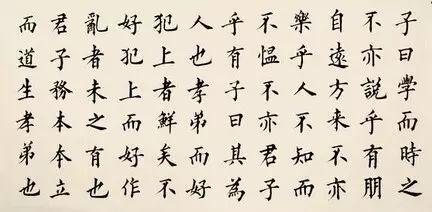 子曰學而時之
不亦說乎有朋
自遠方來不亦
樂乎人不知而
不慍不亦君子
乎有子曰其為
人也孝弟而好
犯上者鮮矣不
好犯上而好作
亂者未之有也
君子務本本立
而道生孝弟也